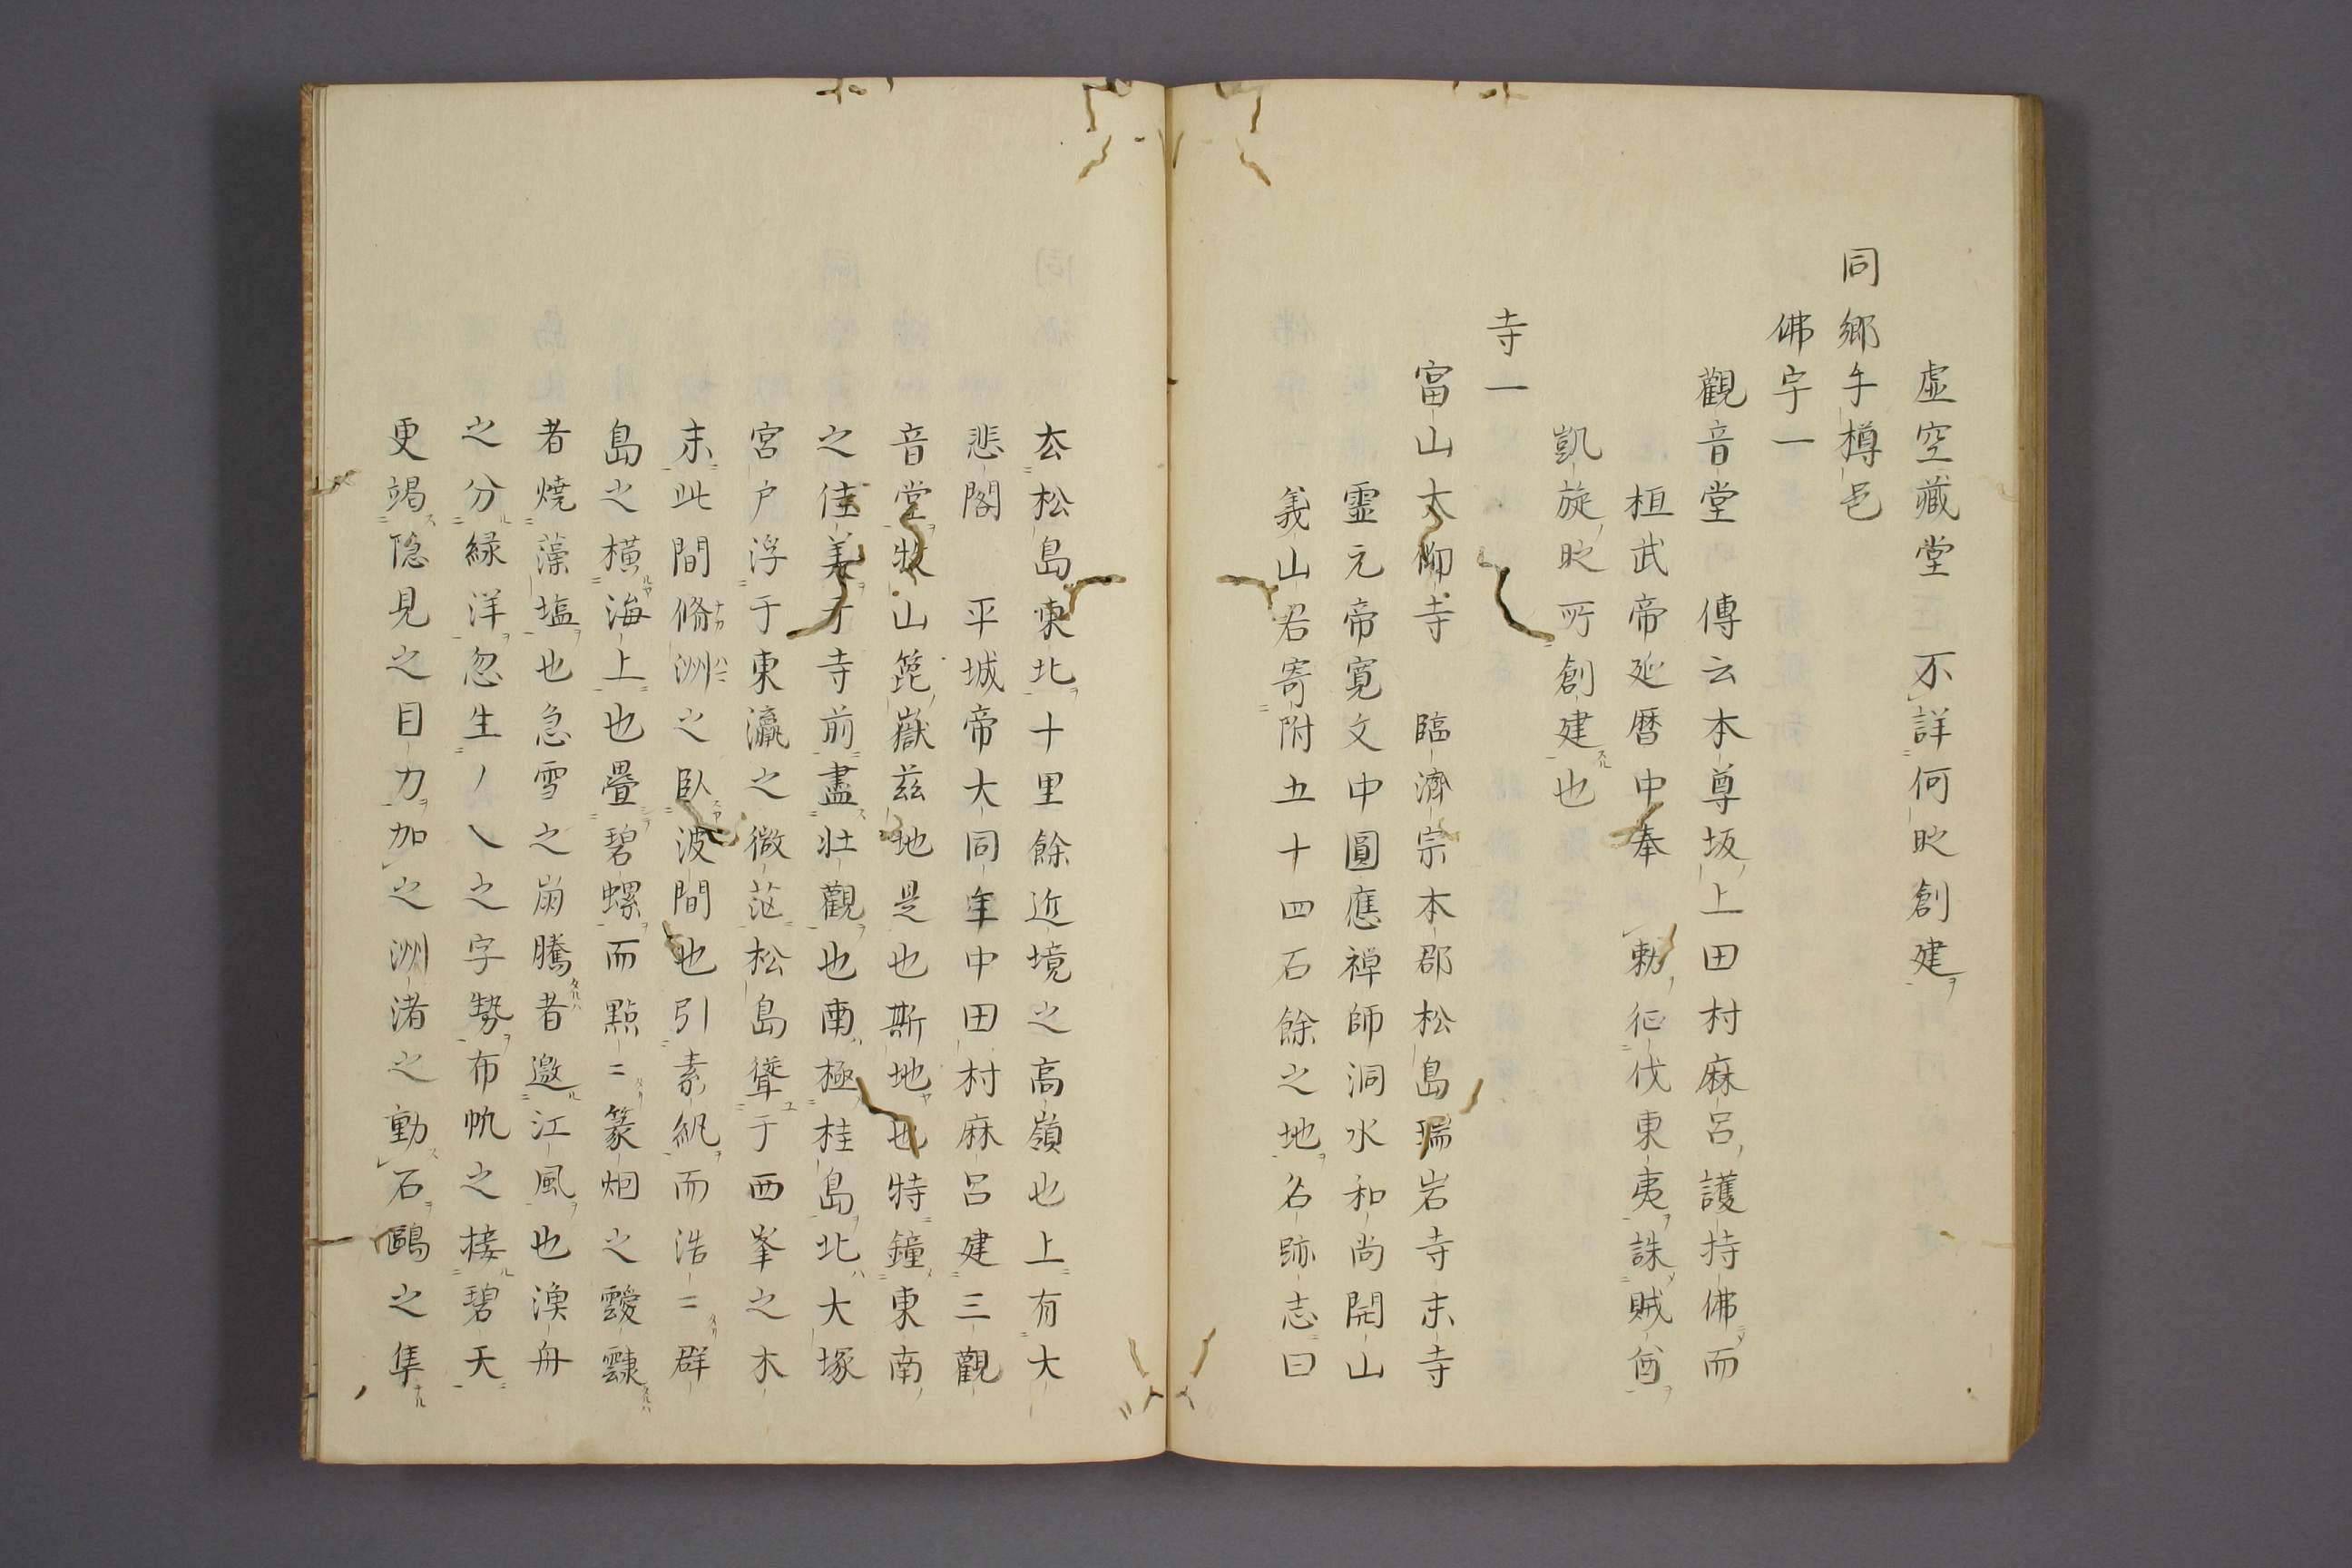 虚空藏堂 不詳何時創建
同郷手樽邑
佛宇一
觀音堂 傳云本尊坂上田村麻呂護持佛而
桓武帝延暦中奉 勅征伐東夷誅賊酋
凱旋時所創建也
寺一
富山大仰寺 臨濟宗本郡松島瑞岩寺末寺
霊元帝寛文中圓應禅師洞水和尚開山
義山君寄附五十四石餘之地名跡志曰
去松島東北十里餘近境之高嶺也上有大
悲閣 平城帝大同年中田村麻呂建三觀
音堂牧山箆嶽茲地是也斯地也特鐘東南
之佳美于寺前盡壮觀也南極桂島北大塚
宮戸浮于東瀛之微茫松島聳于西峯之木
末此間脩洲之臥波間也引素紈而浩〻群
島之横海上也疊碧螺而點〻篆烟之靉靆
者焼藻塩也急雪之崩騰者邀江風也漁舟
之分緑洋忽生ノ乀之字勢布帆之接碧天
更竭隐見之目力加之洲渚之動石鷗之隼